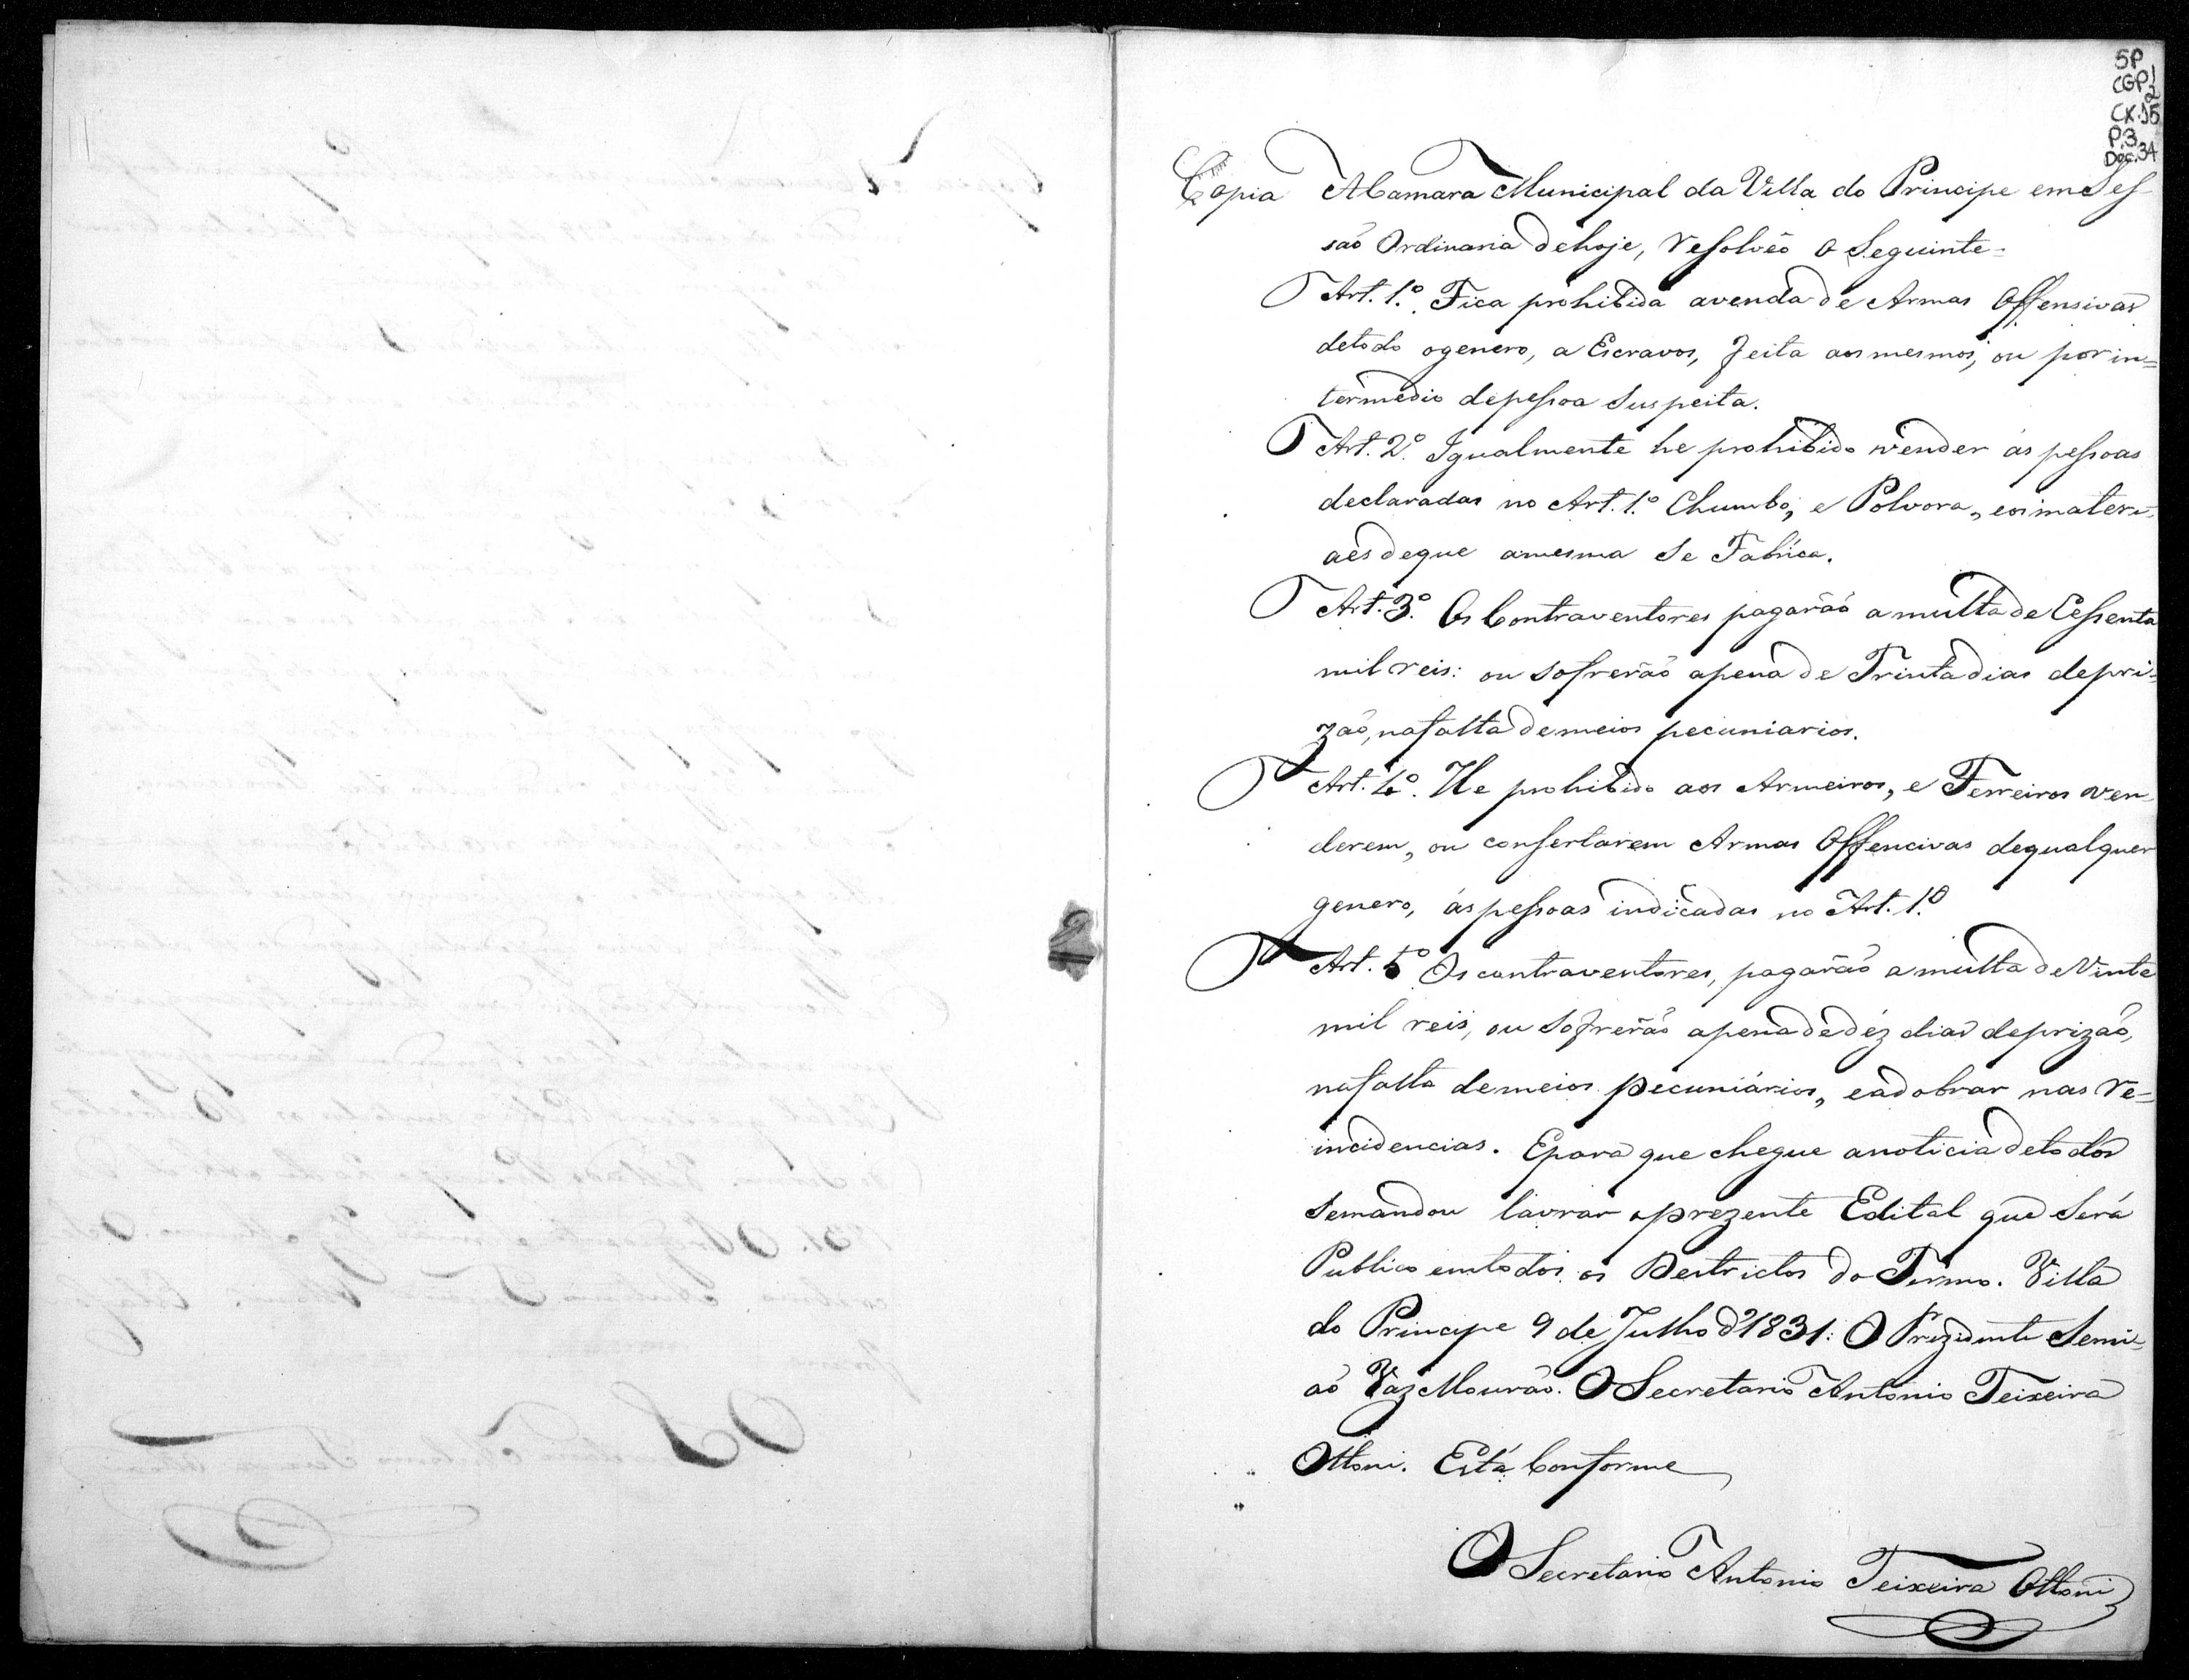 SP
CGP1
2
CX.15
P.3
Doc.34
Copia A Camara Municipal da Villa do Principe em Ses-
são Ordinaria de hoje, resolvêo o Seguinte =
Art. 1.º Fica prohibida avenda de Armas Offensivas
detodo ogenero, a Escravos, feita aos mesmos, ou por in=
termedio depessoa Suspeita.
Art. 2.º Igualmente he prohibido vender ás pessoas
declaradas no Art. 1.º Chumbo, e Polvora, eos materi-
aes deque amesma Se Fabríca.
Art. 3.º Os Contraventores pagaráõ amulta de Cessenta
mil reis: ou sofreráõ apena de Trinta dias depri=
zaõ, nafalta demeios pecuniarios.
Art. 4.º He prohibido aos Armeiros, e Ferreiros ven-
derem, ou consertarem Armas Offencivas dequalquer
genero, ás pessoas indicadas no Art. 1.º
Art. 5º Os contraventores, pagaráõ amulta de Vinte
mil reis, ou Sofreráõ apena de déz dias deprizaõ,
nafalta demeios pecuniários, eadobrar nas re=
incidencias. Epara que chegue anoticia de todos
semandou lavrar oprezente Edital que Será
Publico emtodos os Destrictos do Termo. Villa
do Principe 9 de Julho d'1831: O Prezidente Semi-
aõ Vaz Mouraõ. O Secretario Antonio Teixeira
Ottoni. Está Conforme
O Secretario Antonio Teixeira Ottoni